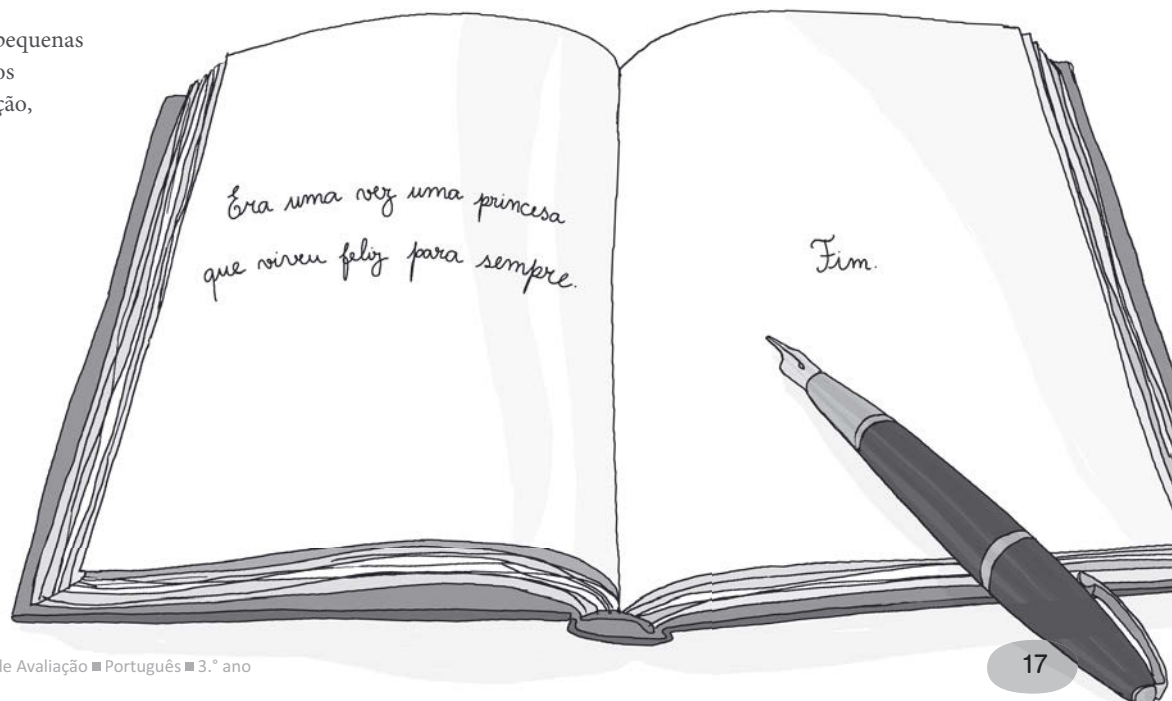 pequenas
os
ção,
Era uma vez uma princesa
que viveu feliz para sempre.
Fim.
de Avaliação ■ Português ■ 3.° ano
17